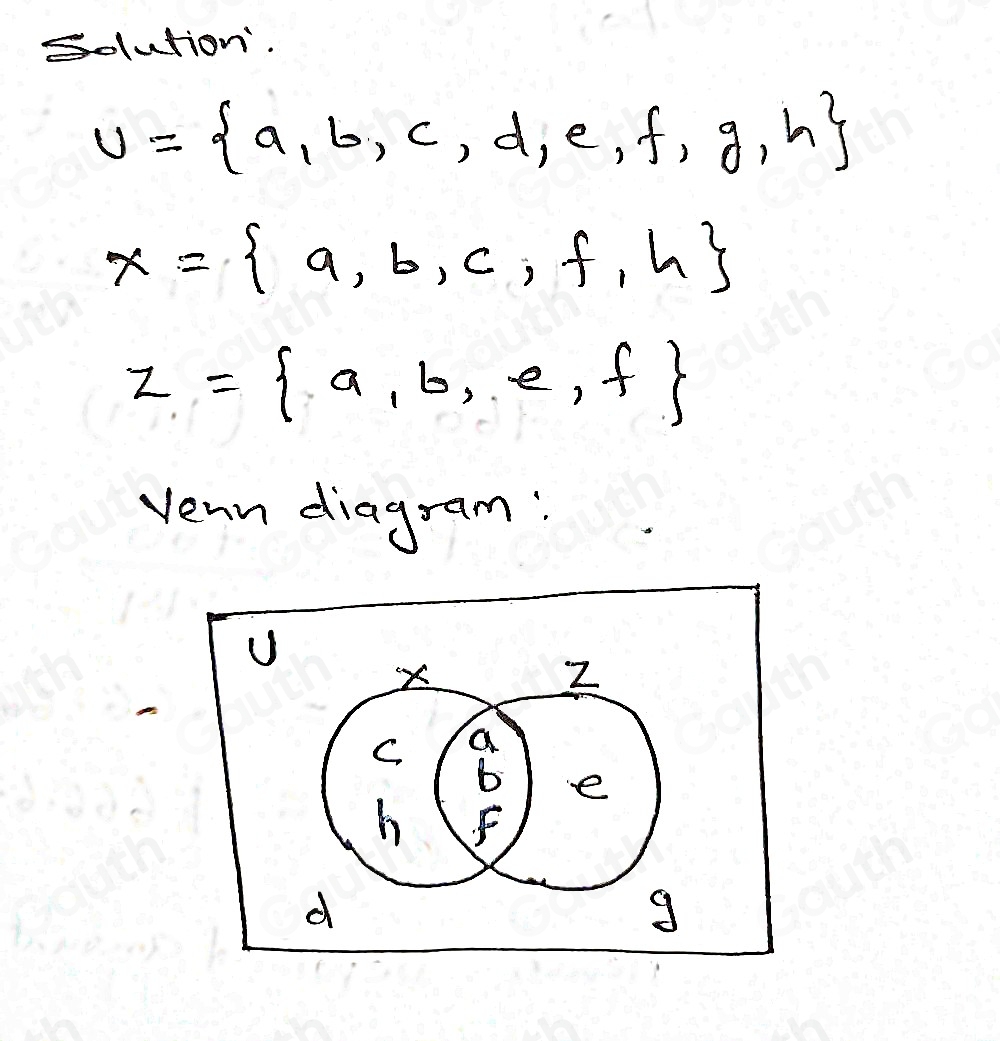 Solution:
U = {a, b, c, d, e, f, g, h}
X = { a, b, c, f, h}
Z = { a, b, e, f }
Venn diagram:
U
X Z
c a
b e
h f
d g